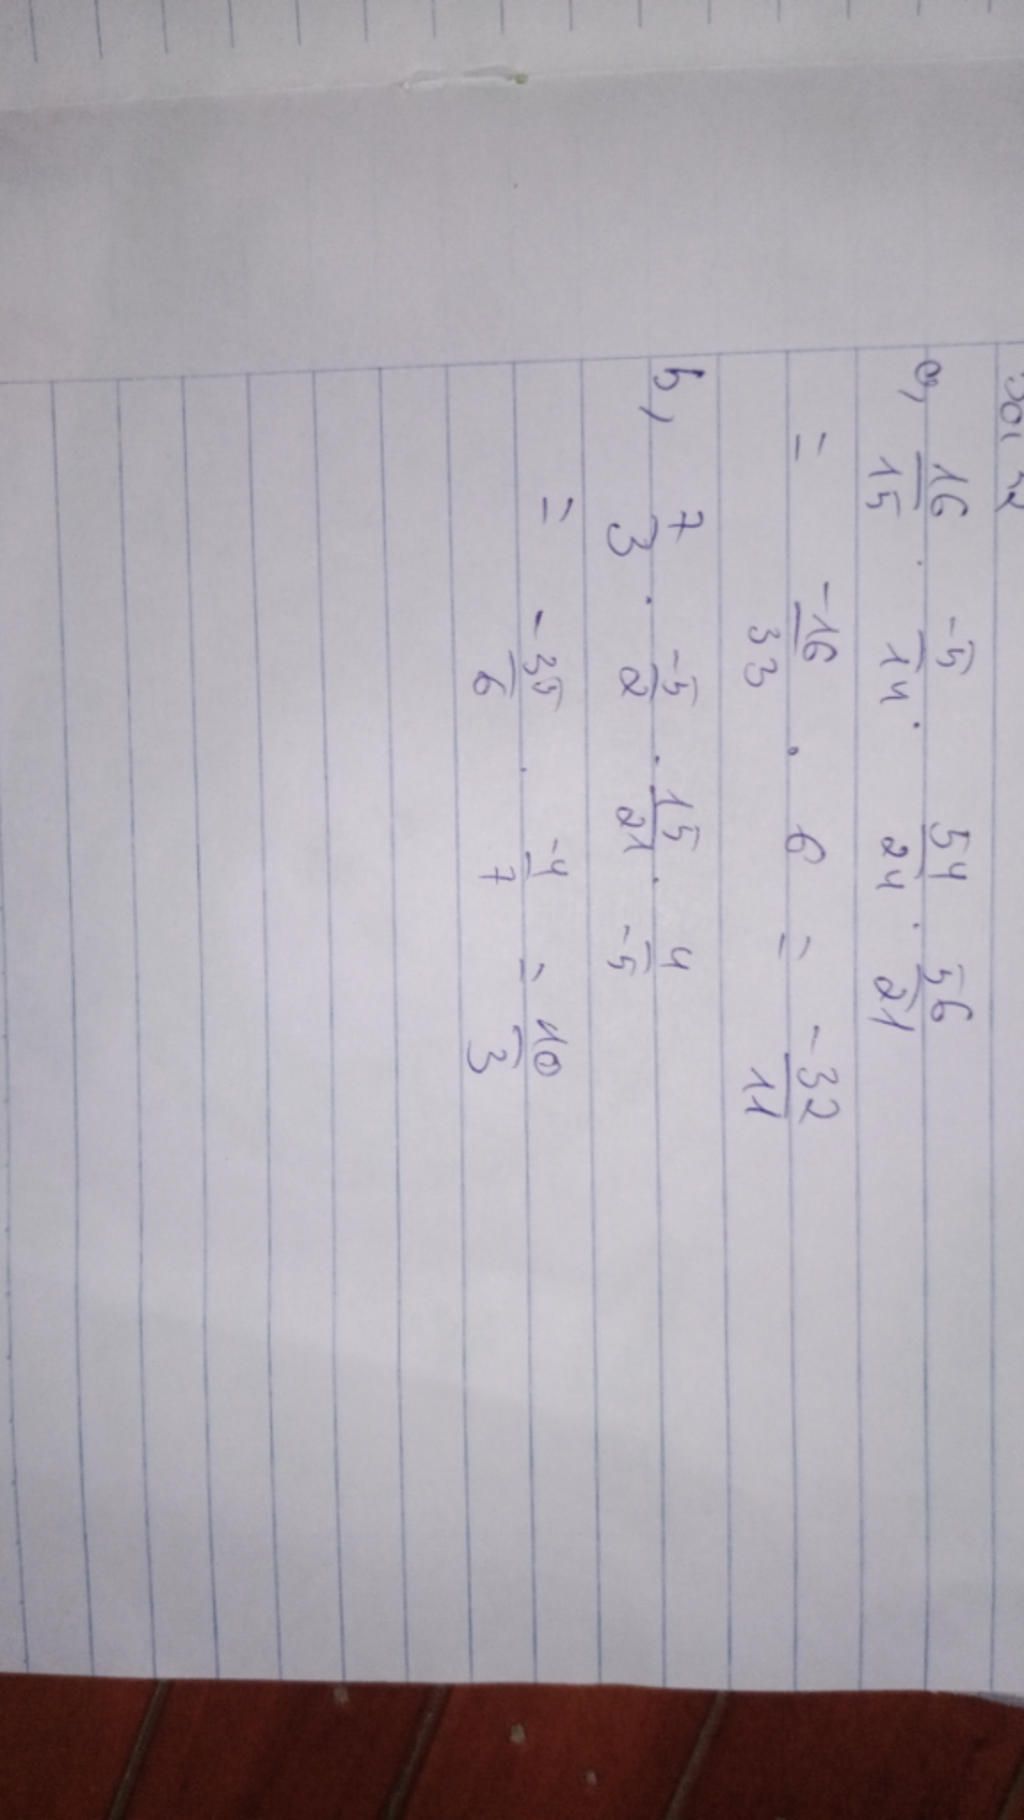 a, 16/15 . -5/14 . 54/24 . 56/21
= -16/33 . 6 = -32/11
b, 7/3 . -5/2 . 15/21 . 4/-5
= -35/6 . -4/7 = 10/3